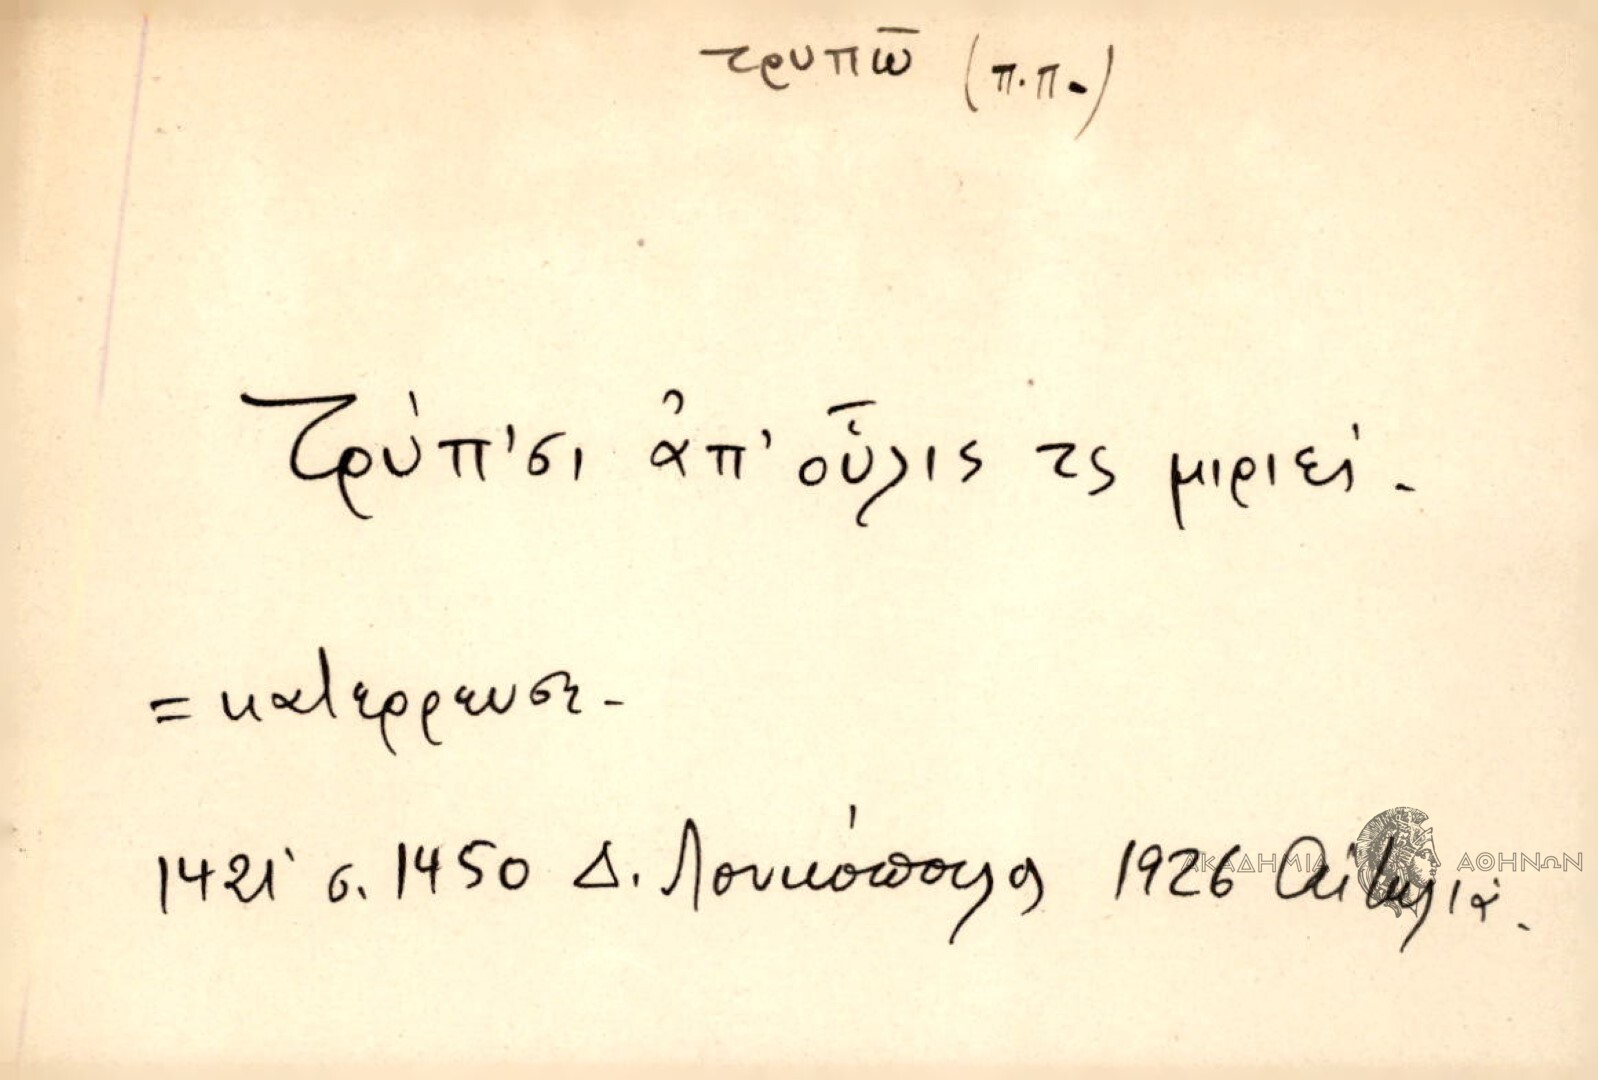 τρυπῶ (π.π.)
Τρύπ'σι ἀπ' οὗλις τς μιριές.
= κατέρρευσε.
1421 σ. 1450 Δ. Λουκόπουλος 1926 Αἰτωλία.
ΑΚΑΔΗΜΙΑ ΑΘΗΝΩΝ